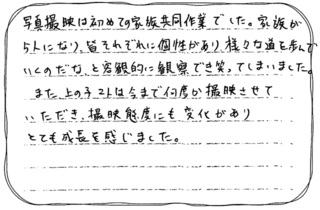 写真撮映は初めての家族共同作業でした。家族が
5人になり、皆それぞれに個性があり、様々な道を歩んで
いくのだな、と客観的に観察でき笑ってしまいました。
また、上の子2人は今まで何度か撮映させて
いただき、撮映態度にも変化があり
とても成長を感じました。